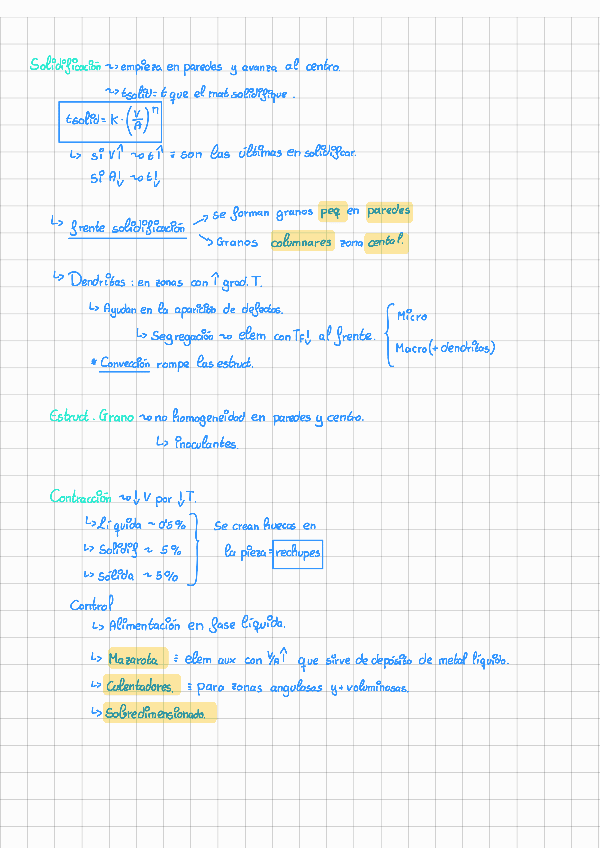 Solidificación ~> empieza en paredes y avanza al centro.
~> tsolid = t que el mat solidifique.
tsolid = K · (V/A)^n
↳ si V↑ ~> t↑ ≡ son las últimas en solidificar.
si A↓ ~> t↓
↳ frente solidificación → se forman granos peq en paredes
→ Granos columnares zona cental.
↳ Dendritas : en zonas con ↑ grad. T.
↳ Ayudan en la aparición de defectos.
↳ Segregación ~> elem con TF↓ al frente. { Micro
Macro (+ dendritas)
* Convección rompe las estruct.
Estruct. Grano ~> no homogeneidad en paredes y centro.
↳ inoculantes.
Contracción ~> ↓V por ↓T.
↳ Líquida ~ 0'5%
↳ Solidif ~ 5%
↳ Sólida ~ 5%
} Se crean huecos en
la pieza = rechupes
Control
↳ Alimentación en fase líquida.
↳ Mazarota ≡ elem aux con V/A↑ que sirve de depósito de metal líquido.
↳ Calentadores. ≡ para zonas angulosas y + voluminosas.
↳ Sobredimensionado.